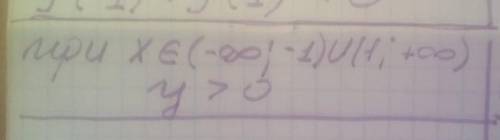 при x ∈ (-∞; -1) ∪ (1; +∞)
y > 0